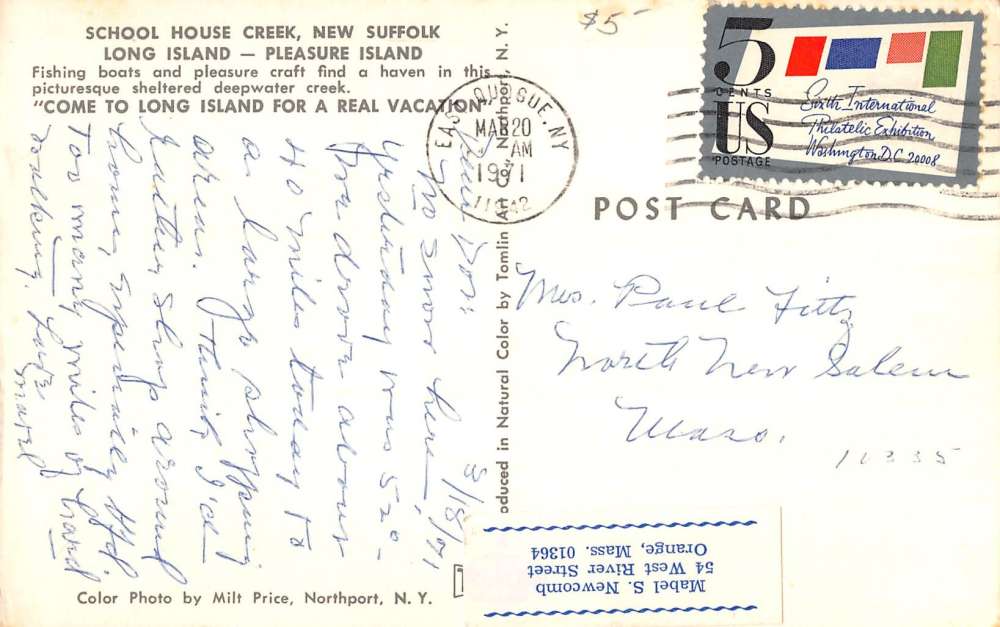 SCHOOL HOUSE CREEK, NEW SUFFOLK
LONG ISLAND — PLEASURE ISLAND
Fishing boats and pleasure craft find a haven in this
picturesque sheltered deepwater creek.
"COME TO LONG ISLAND FOR A REAL VACATION"
3/18/71
No snow here,
yesterday was 52°-
We drove about
40 miles today to
a large shopping
area. Think I'd
rather shop around
home, especially
Too many miles of hard
walking. Love
Mabel
Color Photo by Milt Price, Northport, N. Y.
oduced in Natural Color by Tomlin Art Co., Northport, N. Y.
$5
EAST QUOGUE, NY
MAR 20
AM
1971
5
CENTS
US
POSTAGE
Sixth International
Philatelic Exhibition
Washington D.C. 20008
POST CARD
Mrs. Paul Fitz
North New Salem
Mass.
10335
Mabel S. Newcomb
54 West River Street
Orange, Mass. 01364